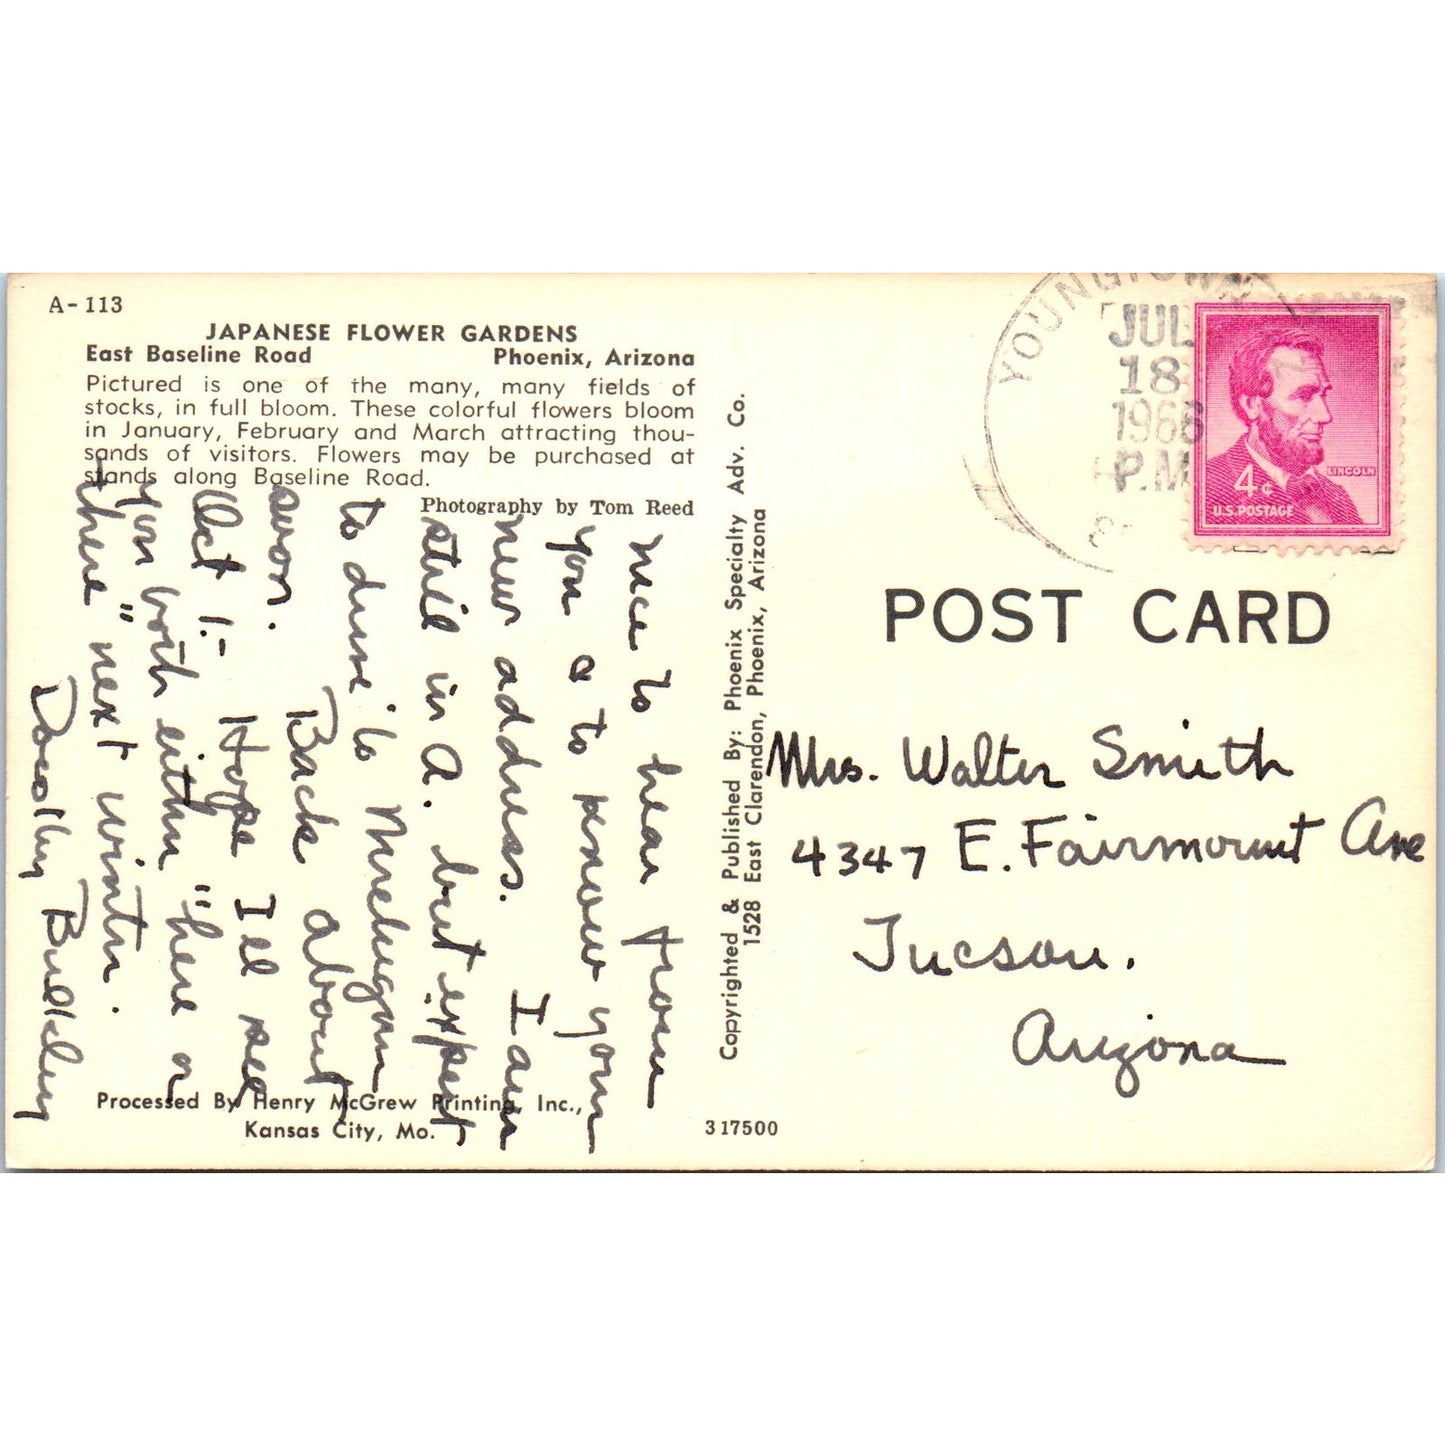 A-113
JAPANESE FLOWER GARDENS
East Baseline Road Phoenix, Arizona
Pictured is one of the many, many fields of
stocks, in full bloom. These colorful flowers bloom
in January, February and March attracting thou-
sands of visitors. Flowers may be purchased at
stands along Baseline Road.
Photography by Tom Reed
Nice to hear from
you & to know your
new address. I am
still in A. but expect
to drive to Michigan
soon. Back about
Oct 1.- Hope I'll see
you both either "here or
there" next winter.
Dorothy Bulkley
Processed By Henry McGrew Printing, Inc.,
Kansas City, Mo.
317500
Copyrighted & Published By: Phoenix Specialty Adv. Co.
1528 East Clarendon, Phoenix, Arizona
YOUNGTOWN
JUL
18
1966
P.M
LINCOLN
4¢
U.S. POSTAGE
POST CARD
Mrs. Walter Smith
4347 E. Fairmount Ave
Tucson.
Arizona